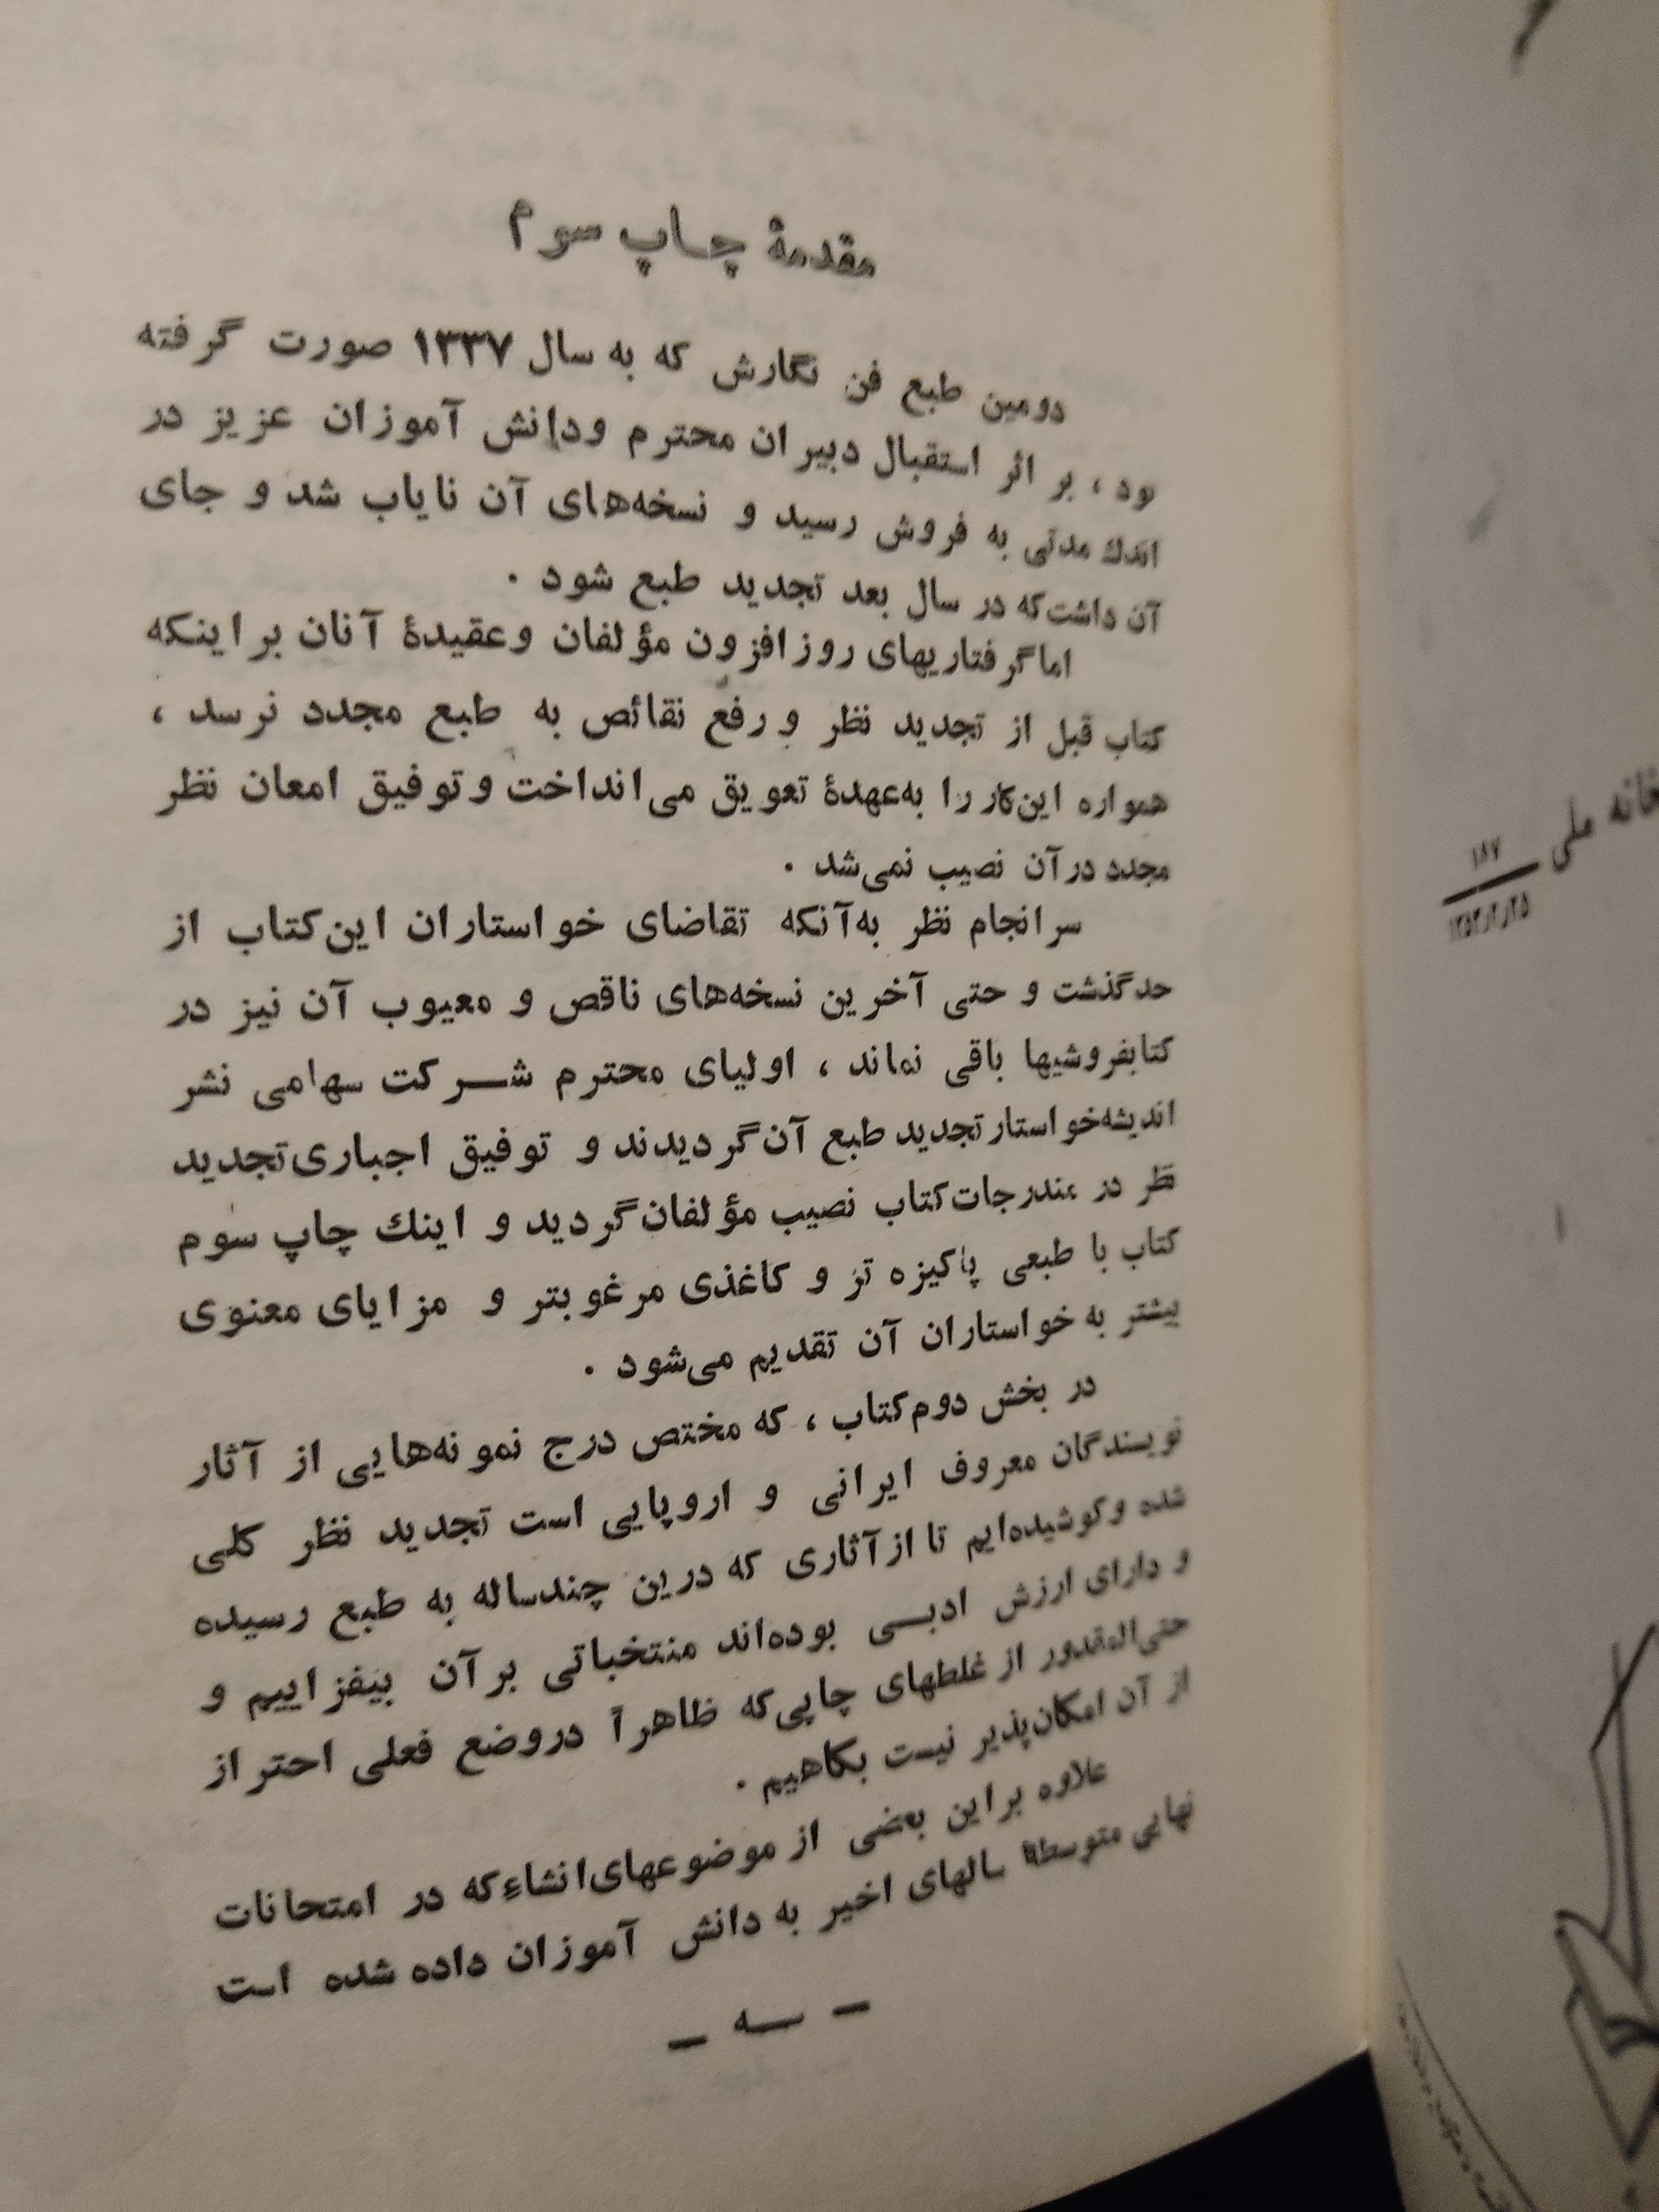 مقدمهٔ چاپ سوم
دومین طبع فن نگارش که به سال ۱۳۳۷ صورت گرفته
بود ، بر اثر استقبال دبیران محترم ودانش آموزان عزیز در
اندك مدتی به فروش رسید و نسخه‌های آن نایاب شد و جای
آن داشت‌که در سال بعد تجدید طبع شود .
اماگرفتاریهای روزافزون مؤلفان وعقیدهٔ آنان براینکه
کتاب قبل از تجدید نظر و رفع نقائص به طبع مجدد نرسد ،
همواره این‌کار را به‌عهدهٔ تعویق می‌انداخت وتوفیق امعان نظر
مجدد درآن نصیب نمی‌شد .
سرانجام نظر به‌آنکه تقاضای خواستاران این‌کتاب از
حدگذشت و حتی آخرین نسخه‌های ناقص و معیوب آن نیز در
کتابفروشیها باقی نماند ، اولیای محترم شرکت سهامی نشر
اندیشه‌خواستار تجدید طبع آن‌گردیدند و توفیق اجباری‌تجدید
نظر در مندرجات‌کتاب نصیب مؤلفان‌گردید و اینك چاپ سوم
کتاب با طبعی پاکیزه تر و کاغذی مرغوبتر و مزایای معنوی
بیشتر به خواستاران آن تقدیم می‌شود .
در بخش دوم‌کتاب ، که مختص درج نمونه‌هایی از آثار
نویسندگان معروف ایرانی و اروپایی است تجدید نظر کلی
شده وکوشیده‌ایم تا ازآثاری که درین چندساله به طبع رسیده
و دارای ارزش ادبی بوده‌اند منتخباتی برآن بیفزاییم و
حتی‌المقدور از غلطهای چاپی‌که ظاهراً دروضع فعلی احتراز
از آن امکان‌پذیر نیست بکاهیم .
علاوه براین بعضی از موضوعهای‌انشاءکه در امتحانات
نهایی متوسطهٔ سالهای اخیر به دانش آموزان داده شده است
– سه –
خانه ملی
۱۸۷
۱۳۵۲/۲/۲۵